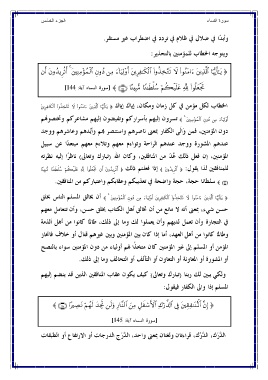 سورة النساء
الجزء الخامس
وأبدًا في ضلال في ظلام في تردد في اضطراب غير مستقر.
ويتوجه الخطاب للمؤمنين بالتحذير:
﴿ يَٰٓأَيُّهَا ٱلَّذِينَ ءَامَنُوا۟ لَا تَتَّخِذُوا۟ ٱلْكَٰفِرِينَ أَوْلِيَآءَ مِن دُونِ ٱلْمُؤْمِنِينَ ۚ أَتُرِيدُونَ أَن
تَجْعَلُوا۟ لِلَّهِ عَلَيْكُمْ سُلْطَٰنًا مُّبِينًا ﴾ [سورة النساء آية 144]
الخطاب لكل مؤمن في كل زمان ومكان، إياك إياك ﴿ يَٰٓأَيُّهَا ٱلَّذِينَ ءَامَنُوا۟ لَا تَتَّخِذُوا۟ ٱلْكَٰفِرِينَ
أَوْلِيَآءَ مِن دُونِ ٱلْمُؤْمِنِينَ ﴾ تسرون إليهم بأسراركم وتفيضون إليهم مشاعركم وتخصونهم
دون المؤمنين، فمن والى الكفار بمعنى ناصرهم واستنصر بهم وأيدهم وعاشرهم ووجد
عندهم المشورة ووجد عندهم الراحة وتواءم معهم وتلاءم معهم مبتعدًا عن سبيل
المؤمنين، إن فعل ذلك عُدّ من المنافقين، وكان الله (تبارك وتعالى) ناظرًا إليه نظرته
للمنافقين لذا يقول: ﴿ أَتُرِيدُونَ ﴾ إذا فعلتم ذلك ﴿ أَتُرِيدُونَ أَن تَجْعَلُوا۟ لِلَّهِ عَلَيْكُمْ سُلْطَٰنًا مُّبِينًا
﴾ سلطانًا حجة، حجة واضحة في تعذيبكم وعقابكم واعتباركم من المنافقين.
﴿ يَٰٓأَيُّهَا ٱلَّذِينَ ءَامَنُوا۟ لَا تَتَّخِذُوا۟ ٱلْكَٰفِرِينَ أَوْلِيَآءَ مِن دُونِ ٱلْمُؤْمِنِينَ ﴾ أن يخالق المسلم الناس بخلق
حسن شيء، بمعنى أنه لا مانع من أن تخالق أهل الكتاب بخلق حسن، وأن تتعامل معهم
في التجارة وأن تعمل لديهم وأن يعملوا لك وما إلى ذلك، طالما كانوا من أهل الذمة
وطالما كانوا من أهل العهد، أما إذا كان بين المؤمنين وبين غيرهم قتال أو خلاف فانحاز
المؤمن أو المسلم إلى غير المؤمنين كان متخذًا لهم أولياء من دون المؤمنين سواء بالنصح
أو المشورة أو المعاونة أو التعاون أو التآلف أو التحالف وما إلى ذلك.
ولكي يبين لك ربنا (تبارك وتعالى) كيف يكون عقاب المنافقين الذين قد ينضم إليهم
المسلم إذا والى الكفار فيقول:
﴿ إِنَّ ٱلْمُنَٰفِقِينَ فِى ٱلدَّرْكِ ٱلْأَسْفَلِ مِنَ ٱلنَّارِ وَلَن تَجِدَ لَهُمْ نَصِيرًا ﴾
[سورة النساء آية 145]
الدَّرَك، الدرْك، قراءتان ولغتان بمعنى واحد، الدَّرَج الدرجات أو الارتفاع أو الطبقات